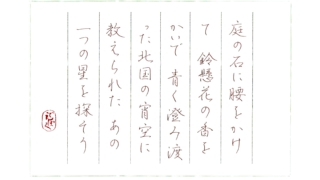 庭の石に腰をかけ
て 鈴懸花の香を
かいで 青く澄み渡
った北国の宵空に
教えられた あの
一つの星を探そう